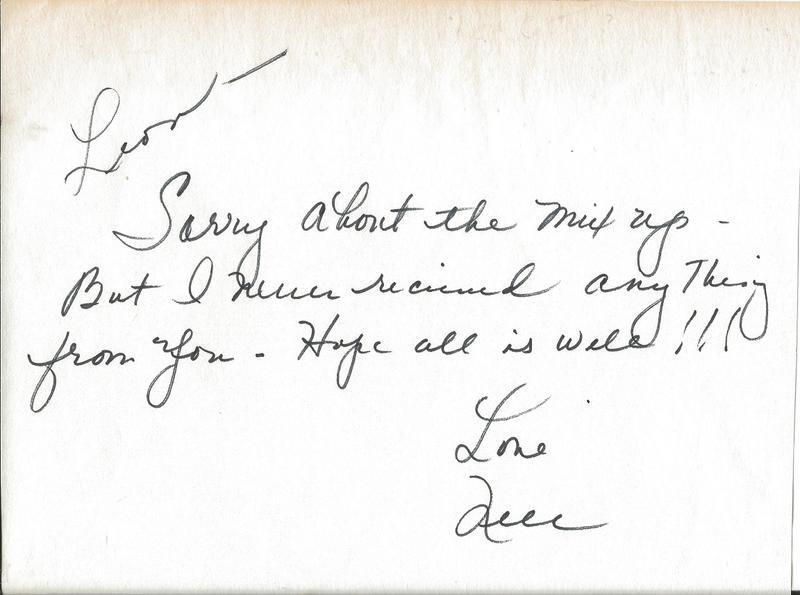 Leon —
Sorry about the mix up -
But I never recieved anything
from you - Hope all is well !!!
Love